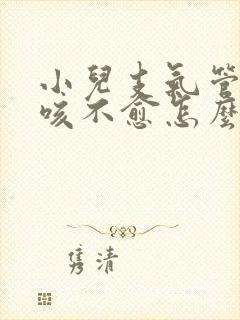 小兒支氣管
咳不愈怎麼
雋清